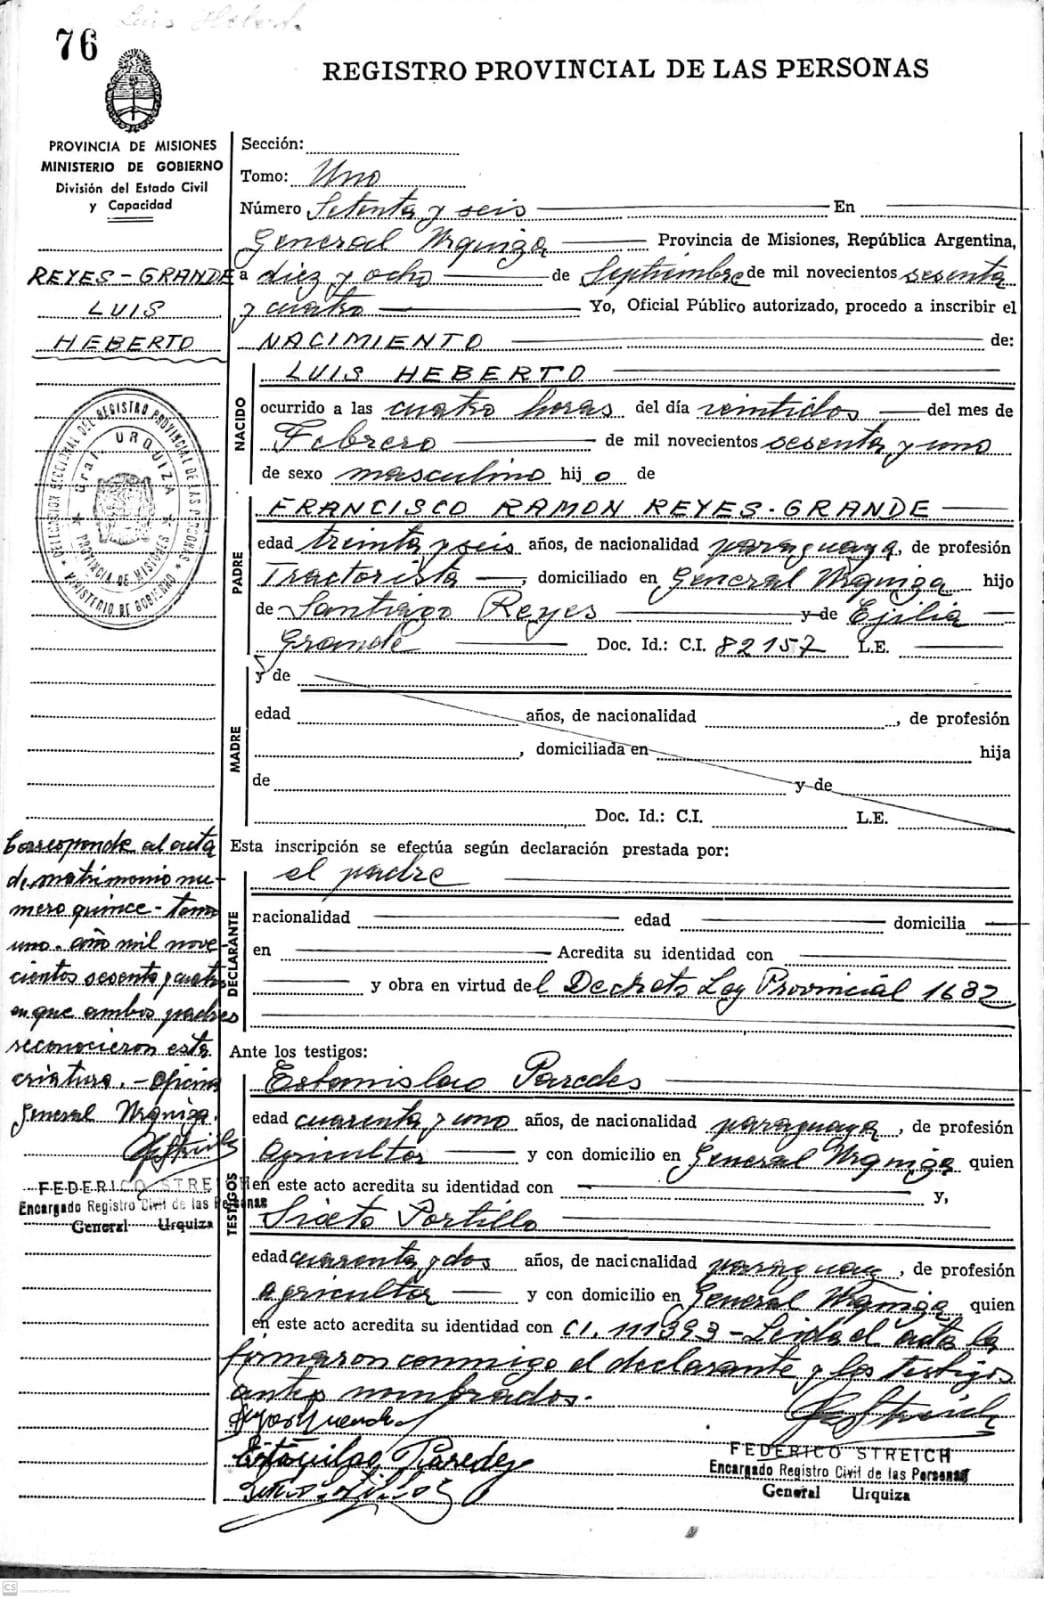 Luis Hebert
76
REGISTRO PROVINCIAL DE LAS PERSONAS
PROVINCIA DE MISIONES
MINISTERIO DE GOBIERNO
División del Estado Civil
y Capacidad
REYES-GRANDE
LUIS
HEBERTO
DELEGACION SECCIONAL DEL REGISTRO PROVINCIAL DE LAS PERSONAS
Gral. URQUIZA
PROVINCIA DE MISIONES
MINISTERIO DE GOBIERNO
Corresponde al acta
de matrimonio nu-
mero quince - tomo
uno. año mil nove-
cientos sesenta y cuatro
en que ambos padres
reconocieron esta
criatura. - Oficina
General Urquiza.
FEDERICO STRE
Encargado Registro Civil de las Personas
General Urquiza
Sección:
Tomo: Uno
Número Setenta y seis En
General Urquiza Provincia de Misiones, República Argentina,
a diez y ocho de Septiembre de mil novecientos sesenta
y cuatro Yo, Oficial Público autorizado, procedo a inscribir el
NACIMIENTO de:
NACIDO
LUIS HEBERTO
ocurrido a las cuatro horas del día veintidos del mes de
Febrero de mil novecientos sesenta y uno
de sexo masculino hijo de
PADRE
FRANCISCO RAMON REYES-GRANDE
edad treinta y seis años, de nacionalidad paraguaya, de profesión
Tractorista, domiciliado en General Urquiza hijo
de Santiago Reyes y de Ejilia
Grande Doc. Id.: C.I. 82157 L.E.
MADRE
y de
edad años, de nacionalidad , de profesión
, domiciliada en hija
de y de
Doc. Id.: C.I. L.E.
Esta inscripción se efectúa según declaración prestada por:
DECLARANTE
el padre
racionalidad edad domicilia
en Acredita su identidad con
y obra en virtud del Decreto Ley Provincial 1682
Ante los testigos:
TESTIGOS
Estanislao Paredes
edad cuarenta y uno años, de nacionalidad paraguaya, de profesión
Agricultor y con domicilio en General Urquiza quien
en este acto acredita su identidad con y,
Sixto Portillo
edad cuarenta y dos años, de nacionalidad paraguay, de profesión
agricultor y con domicilio en General Urquiza quien
en este acto acredita su identidad con CI. 111393 - Leida el acta la
firmaron conmigo el declarante y los testigos
antes nombrados.
Paredes
FEDERICO STREICH
Encargado Registro Civil de las Personas
General Urquiza
CS